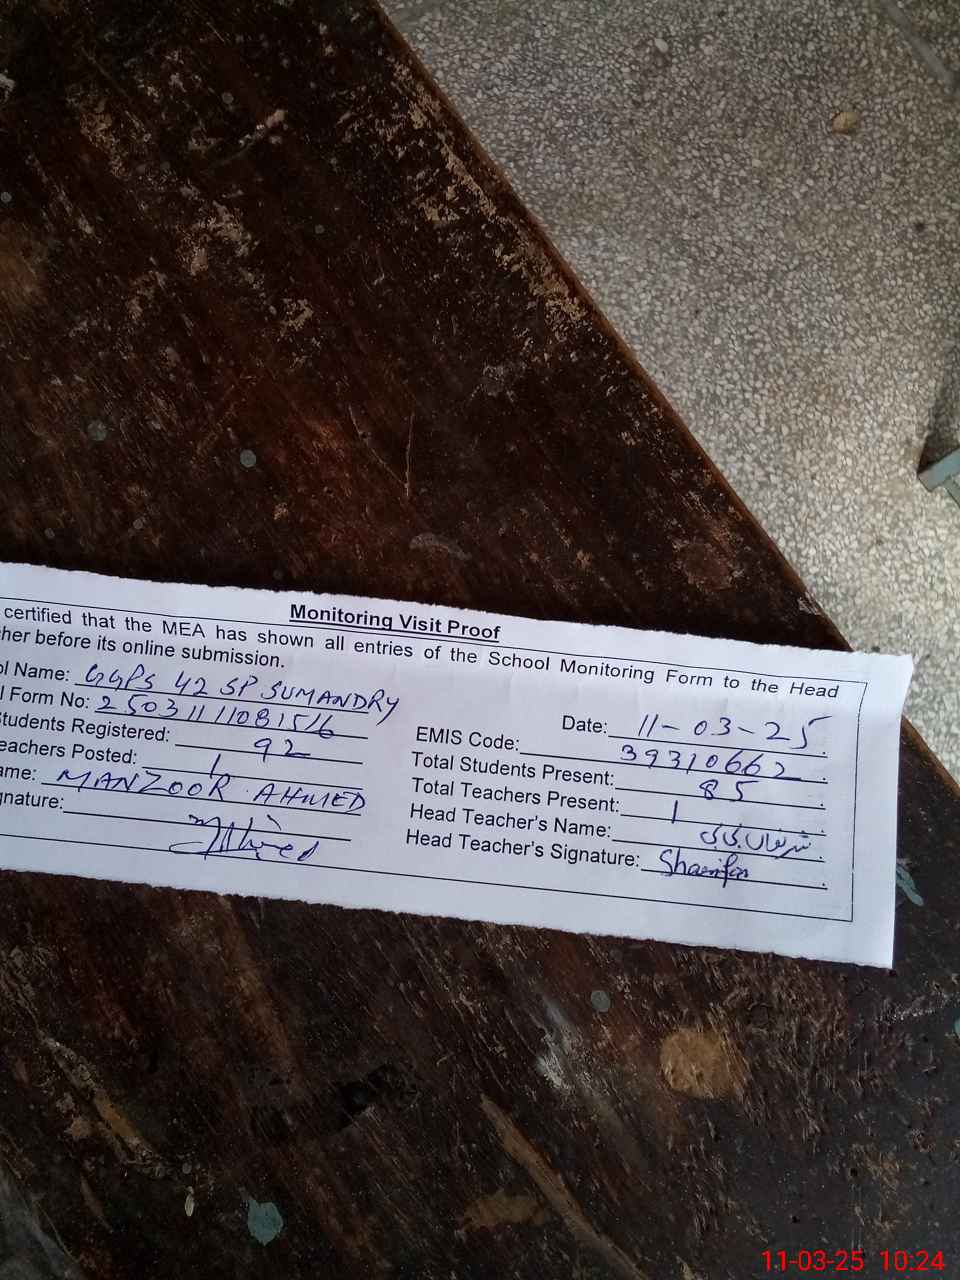 Monitoring Visit Proof
certified that the MEA has shown all entries of the School Monitoring Form to the Head
her before its online submission.
ol Name: GGPS 42 SP SUMANDRY
Date: 11-03-25
l Form No: 25031111081516
EMIS Code: 39310662
tudents Registered: 92
Total Students Present: 85
eachers Posted: 1
Total Teachers Present: 1
ame: MANZOOR AHMED
Head Teacher's Name:
gnature:
Head Teacher's Signature:
11-03-25 10:24